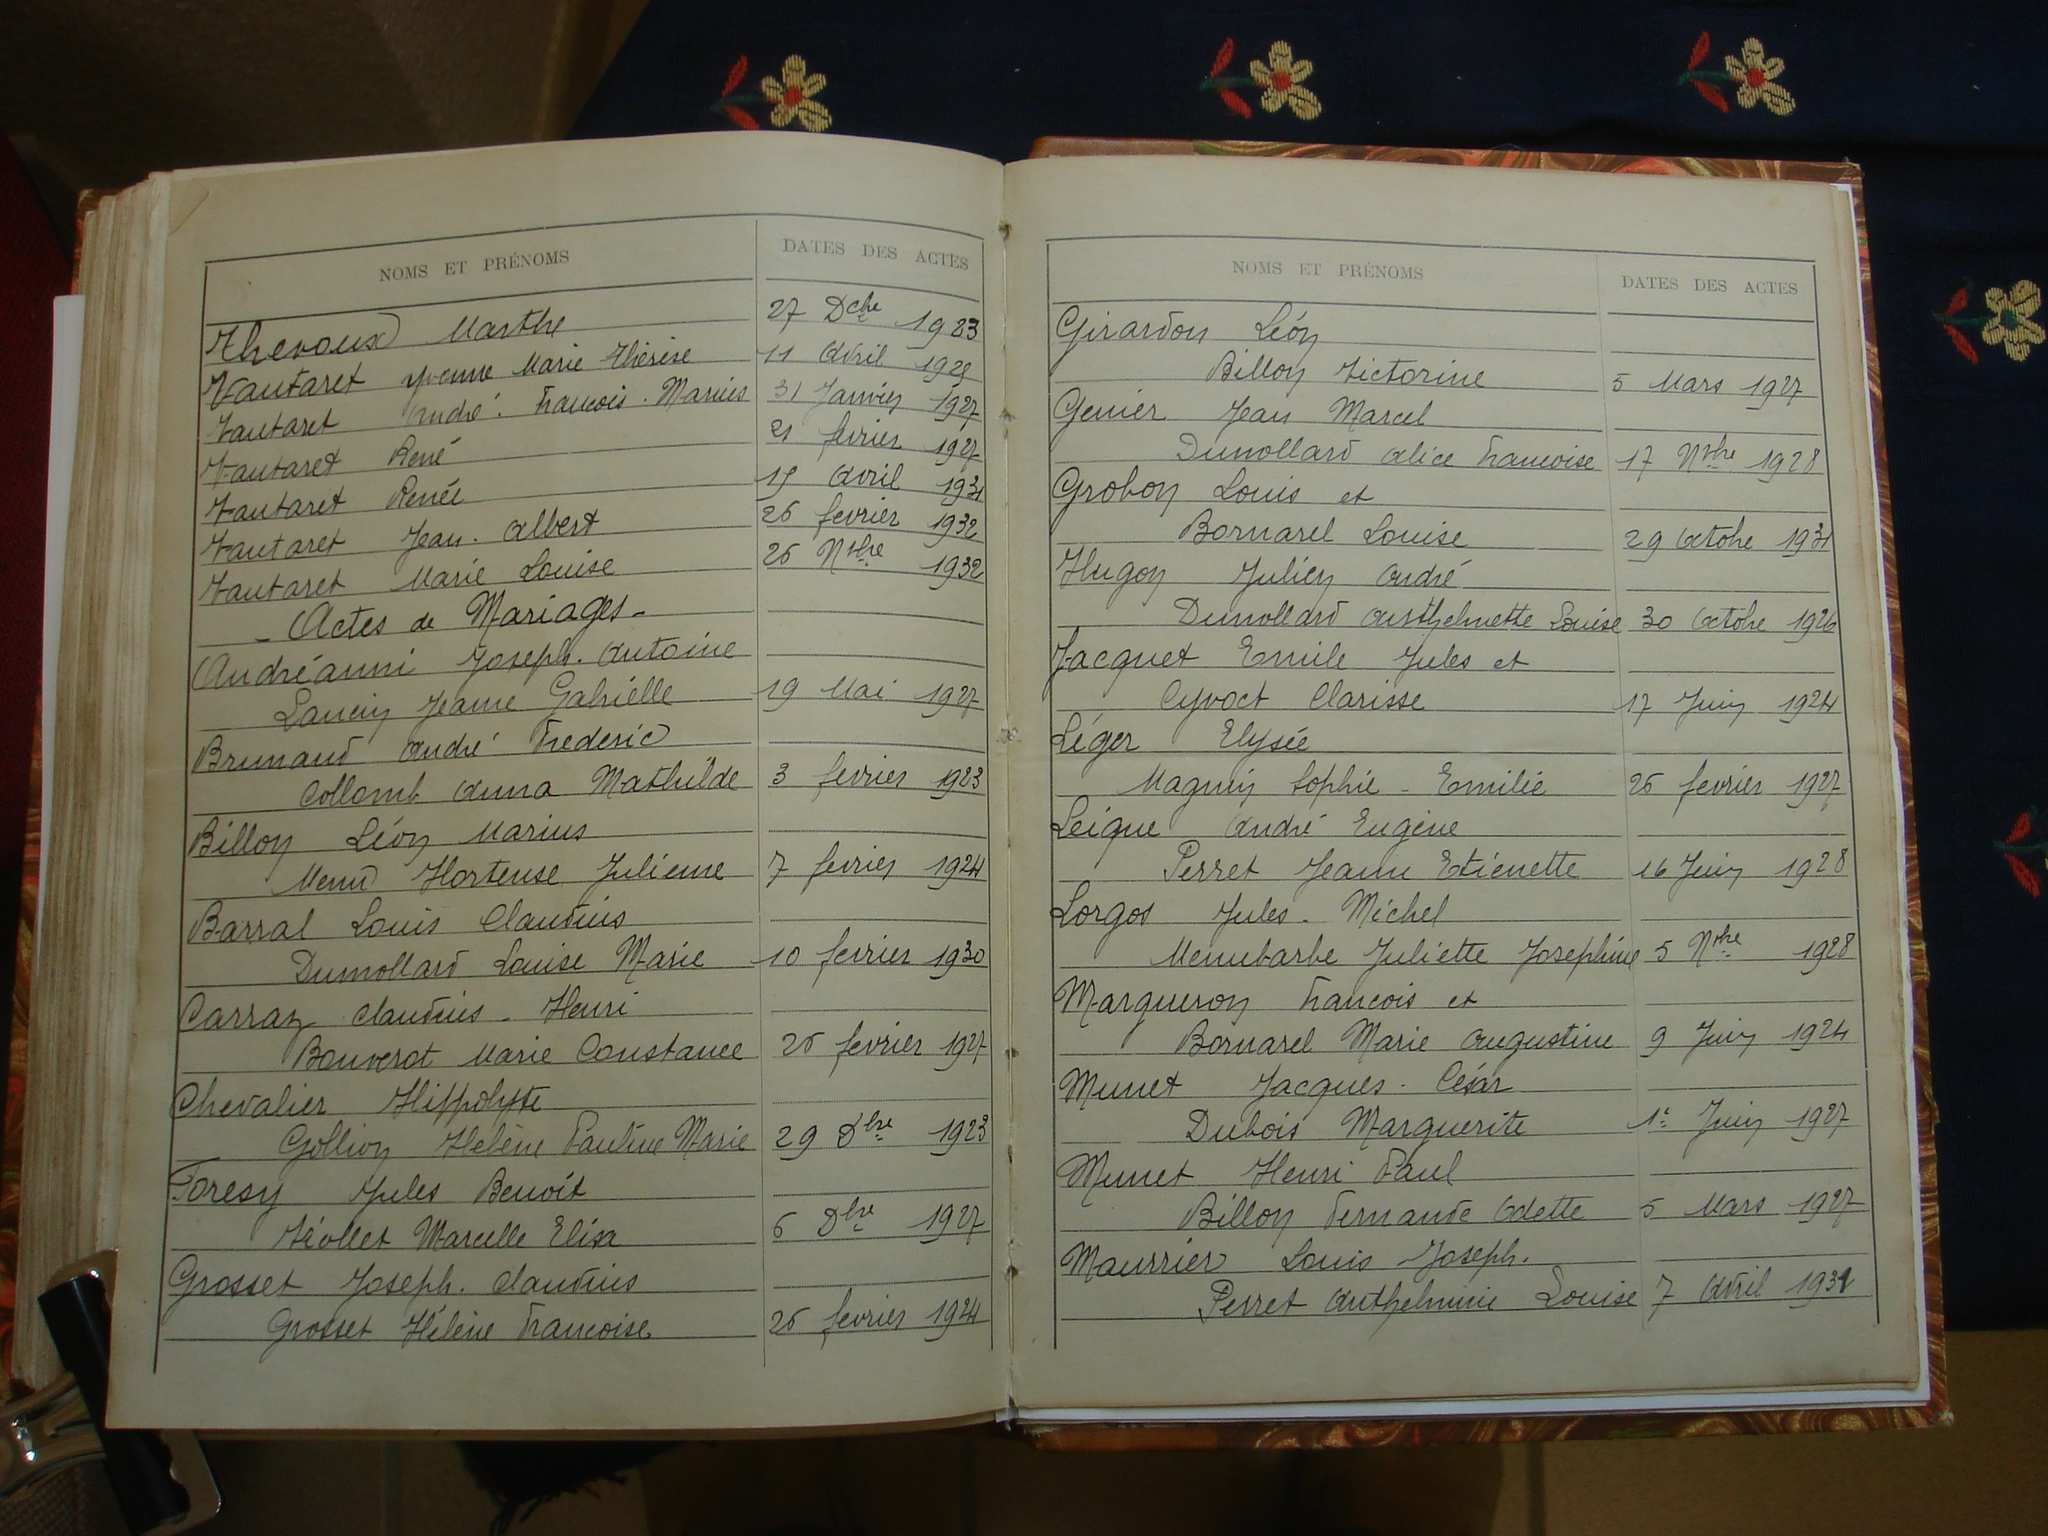 NOMS ET PRÉNOMS DATES DES ACTES
Thevoux Marthe 27 Dcbre 1923
Vautaret Yvonne Marie Thérèse 11 Avril
Vautaret André. François. Marius 31 Janvier 1927
Vautaret René 21 fevrier 1927
Vautaret Renée Avril 1931
Vautaret Jean. Albert 26 fevrier 1932
Vautaret Marie Louise 26 Nbre 1932
- Actes de Mariages -
Andréanni Joseph. Antoine
Lancin Jeanne Gabrielle 19 Mai 1927
Brunand André Frederic
Collomb Anna Mathilde 3 fevrier 1923
Billon Léon Marius
Menu Hortense Julienne 7 fevrier 1924
Barral Louis Claudius
Dumollard Louise Marie 10 fevrier 1930
Carraz Claudius - Henri
Bouverot Marie Constance 26 fevrier 1927
Chevalier Hippolyte
Gollion Hélène Pauline Marie 29 Dbre 1923
Foresy Jules Benoit
Marcelle Elisa 6 Dbre 1927
Grosset Joseph. Claudius
Grosset Hélène Francoise 26 fevrier 1924
NOMS ET PRÉNOMS DATES DES ACTES
Girardon Léon
Billon Victorine 5 Mars 1927
Genier Jean Marcel
Dumollard Alice Francoise 17 Nbre 1928
Grobon Louis et
Bornarel Louise 29 Octobe 1931
Hugon Julien André
Dumollard Anthelmette Louise 30 Octobe 1926
Jacquet Emile Jules et
Cyvoct Clarisse 17 Juin 1924
Léger Elysée
Magnin Sophie - Emilie 26 fevrier 1927
Leigue André Eugène
Perret Jeanne Etienette 16 Juin 1928
Lorgos Jules - Michel
Menubarbe Juliette Josephine 5 Nbre 1928
Margueron Francois et
Bornarel Marie Augustine 9 Juin 1924
Munet Jacques - César
Dubois Marguerite 1e Juin 1927
Munet Henri Paul
Billon Fernande Odette 5 Mars 1927
Maurrier Louis Joseph.
Perret Anthelmine Louise 7 Avril